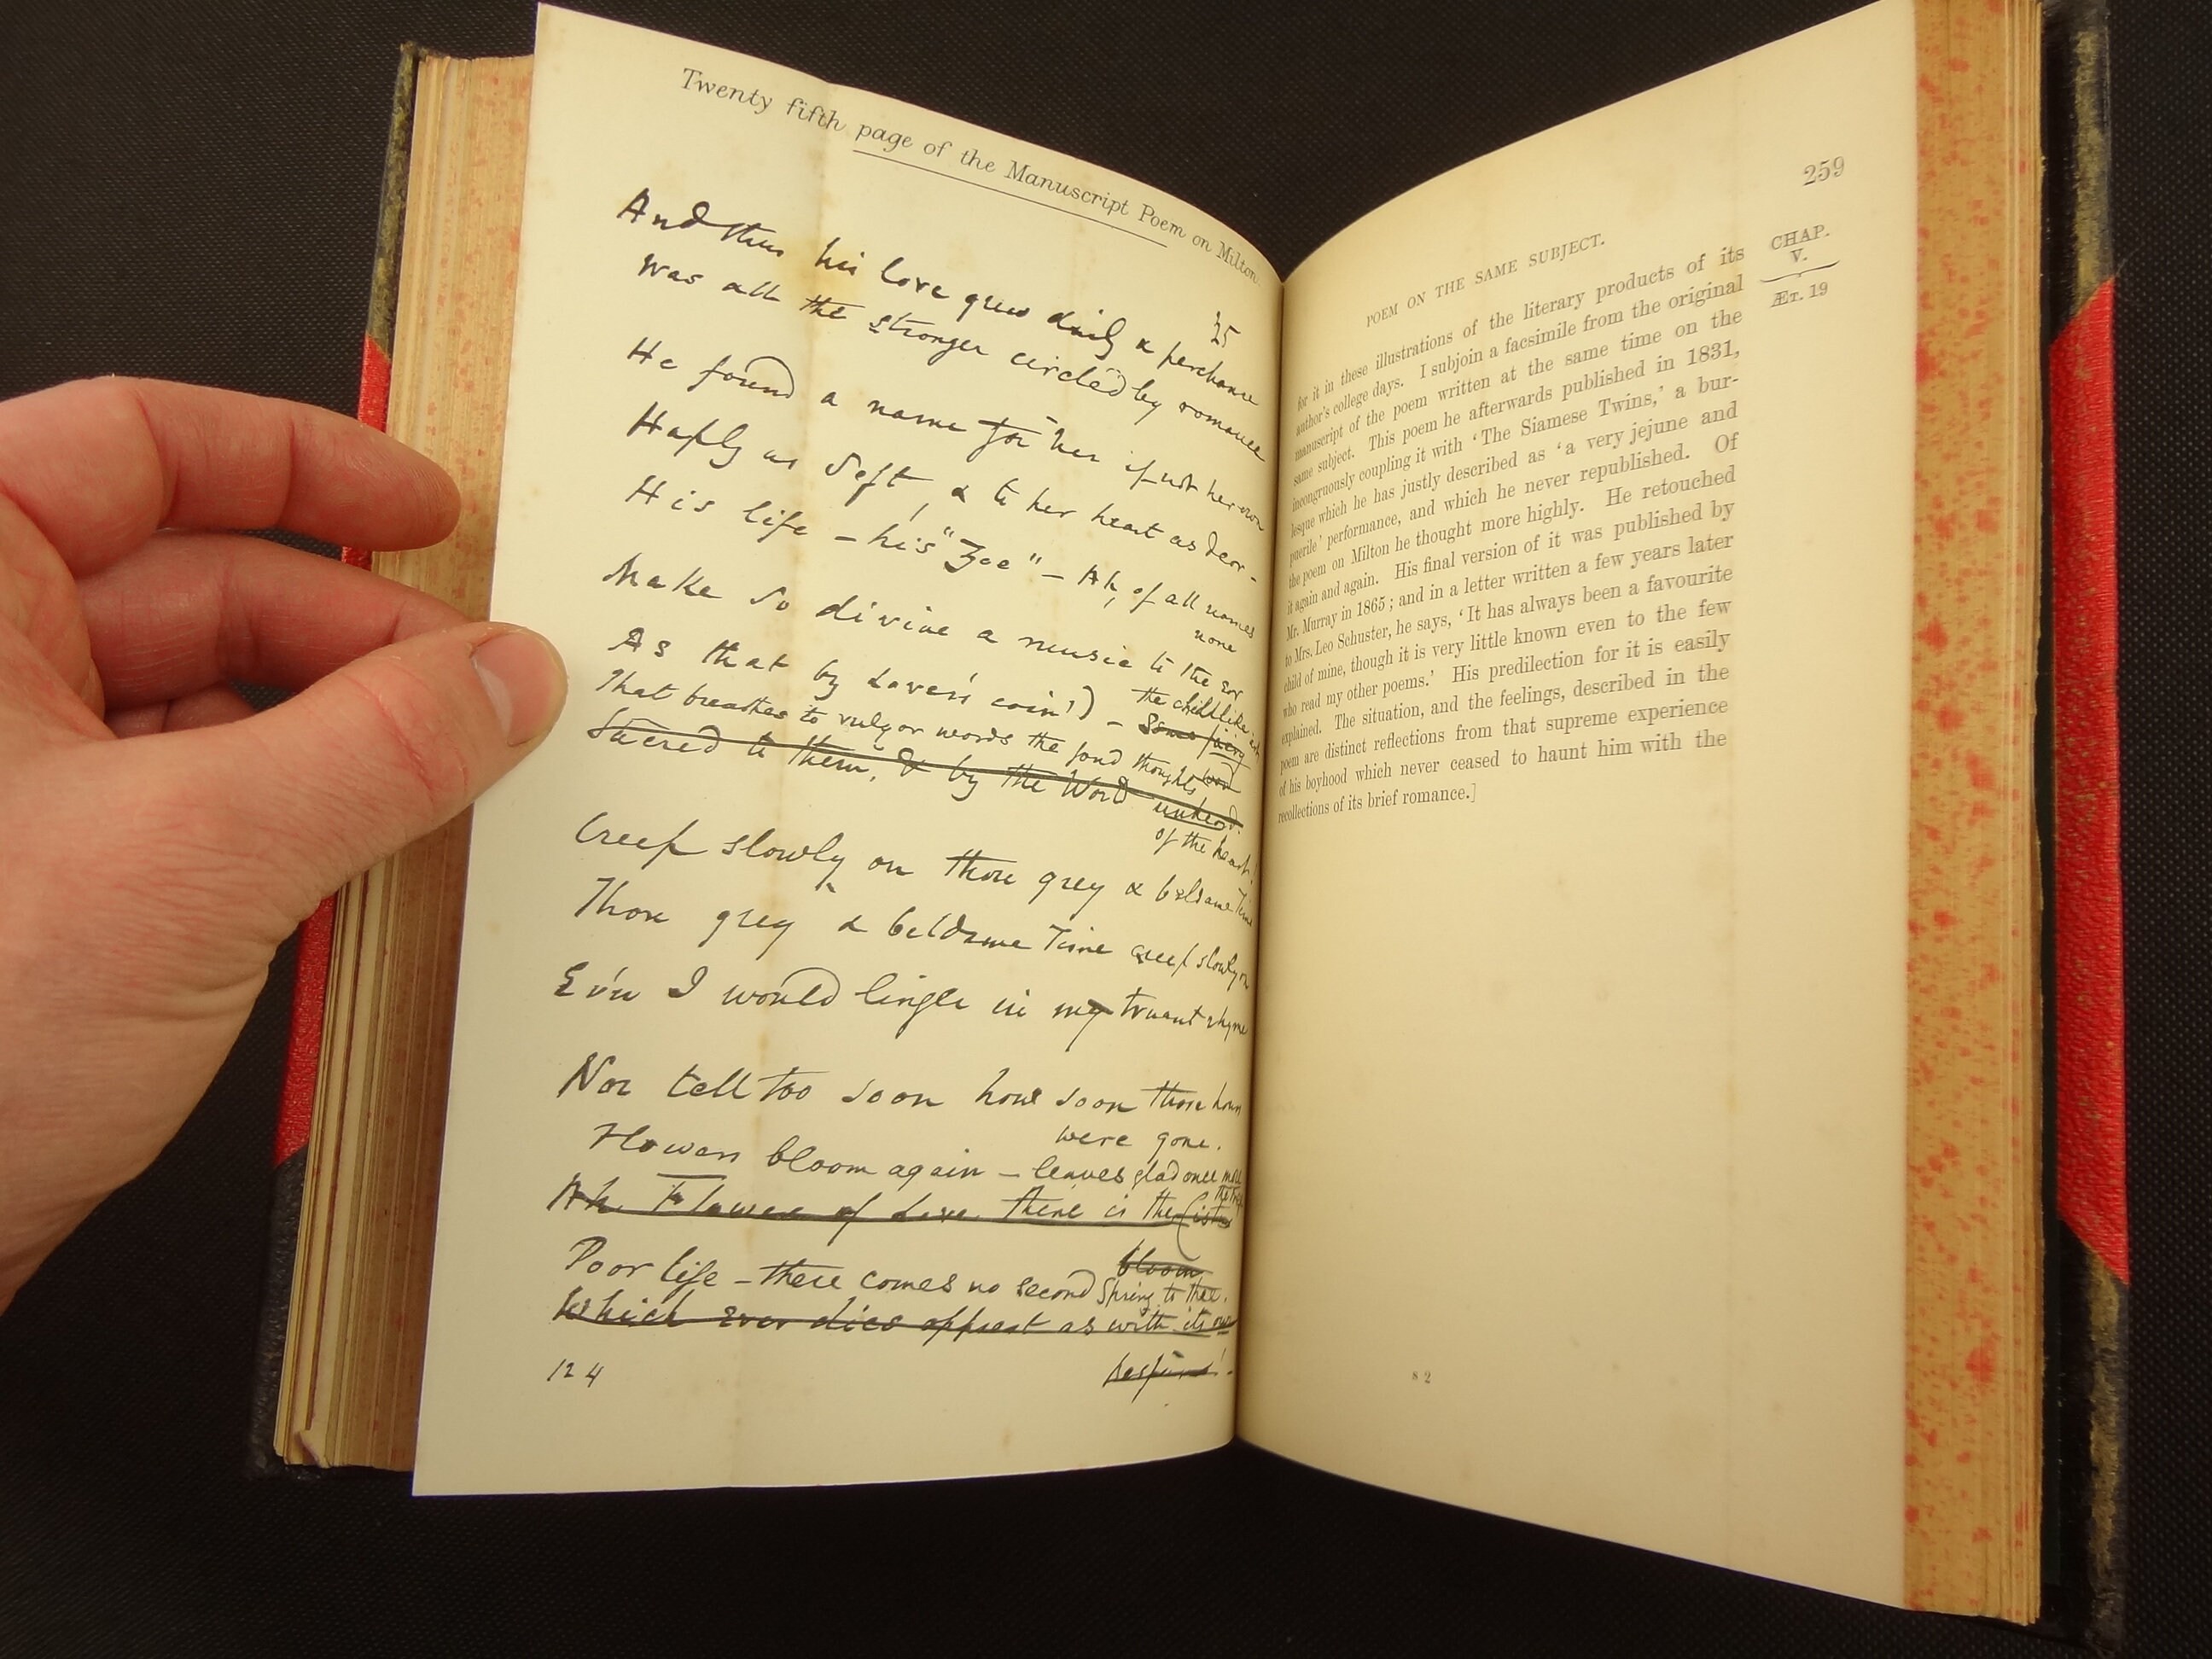 Twenty fifth page of the Manuscript Poem on Milton.
25
And thus his love grew daily & perchance
Was all the stronger circled by romance
He found a name for her if not her own
Haply as soft, & to her heart as dear -
His life - his "Zoe" - Ah, of all names
none
Make so divine a music to the ear
As that by Lovers coin'd) - the childlike
Some fairy
That breathes to vulgar words the fond thoughts word
Sacred to them, & by the World unheard.
of the heart!
Creep slowly on thou grey & beldame Time
Thou grey & beldame Time creep slowly on
Ev'n I would lingle in my truant rhyme
Nor tell too soon how soon those hours
were gone.
Flowers bloom again - leaves glad once more
the tree
Ah. Flower of Love. there is the
bloom
Poor life - there comes no second Spring to thee.
Which ever dies opprest as with its own
124
259
POEM ON THE SAME SUBJECT.
CHAP.
V.
ÆT. 19
for it in these illustrations of the literary products of its
author's college days. I subjoin a facsimile from the original
manuscript of the poem written at the same time on the
same subject. This poem he afterwards published in 1831,
incongruously coupling it with 'The Siamese Twins,' a bur-
lesque which he has justly described as 'a very jejune and
puerile' performance, and which he never republished. Of
the poem on Milton he thought more highly. He retouched
it again and again. His final version of it was published by
Mr. Murray in 1865; and in a letter written a few years later
to Mrs. Leo Schuster, he says, 'It has always been a favourite
child of mine, though it is very little known even to the few
who read my other poems.' His predilection for it is easily
explained. The situation, and the feelings, described in the
poem are distinct reflections from that supreme experience
of his boyhood which never ceased to haunt him with the
recollections of its brief romance.]
s 2